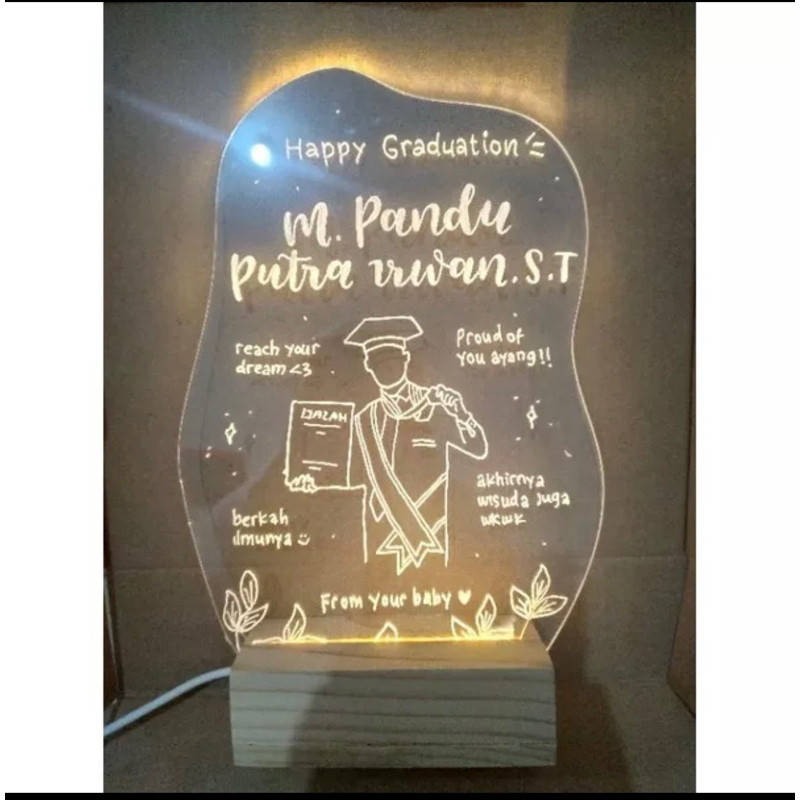 Happy Graduation
M. Pandu
Putra irwan.S.T
reach your
dream <3
Proud of
you ayang!!
IJAZAH
akhirnya
wisuda juga
wkwk
berkah
ilmunya :)
From your baby ♥